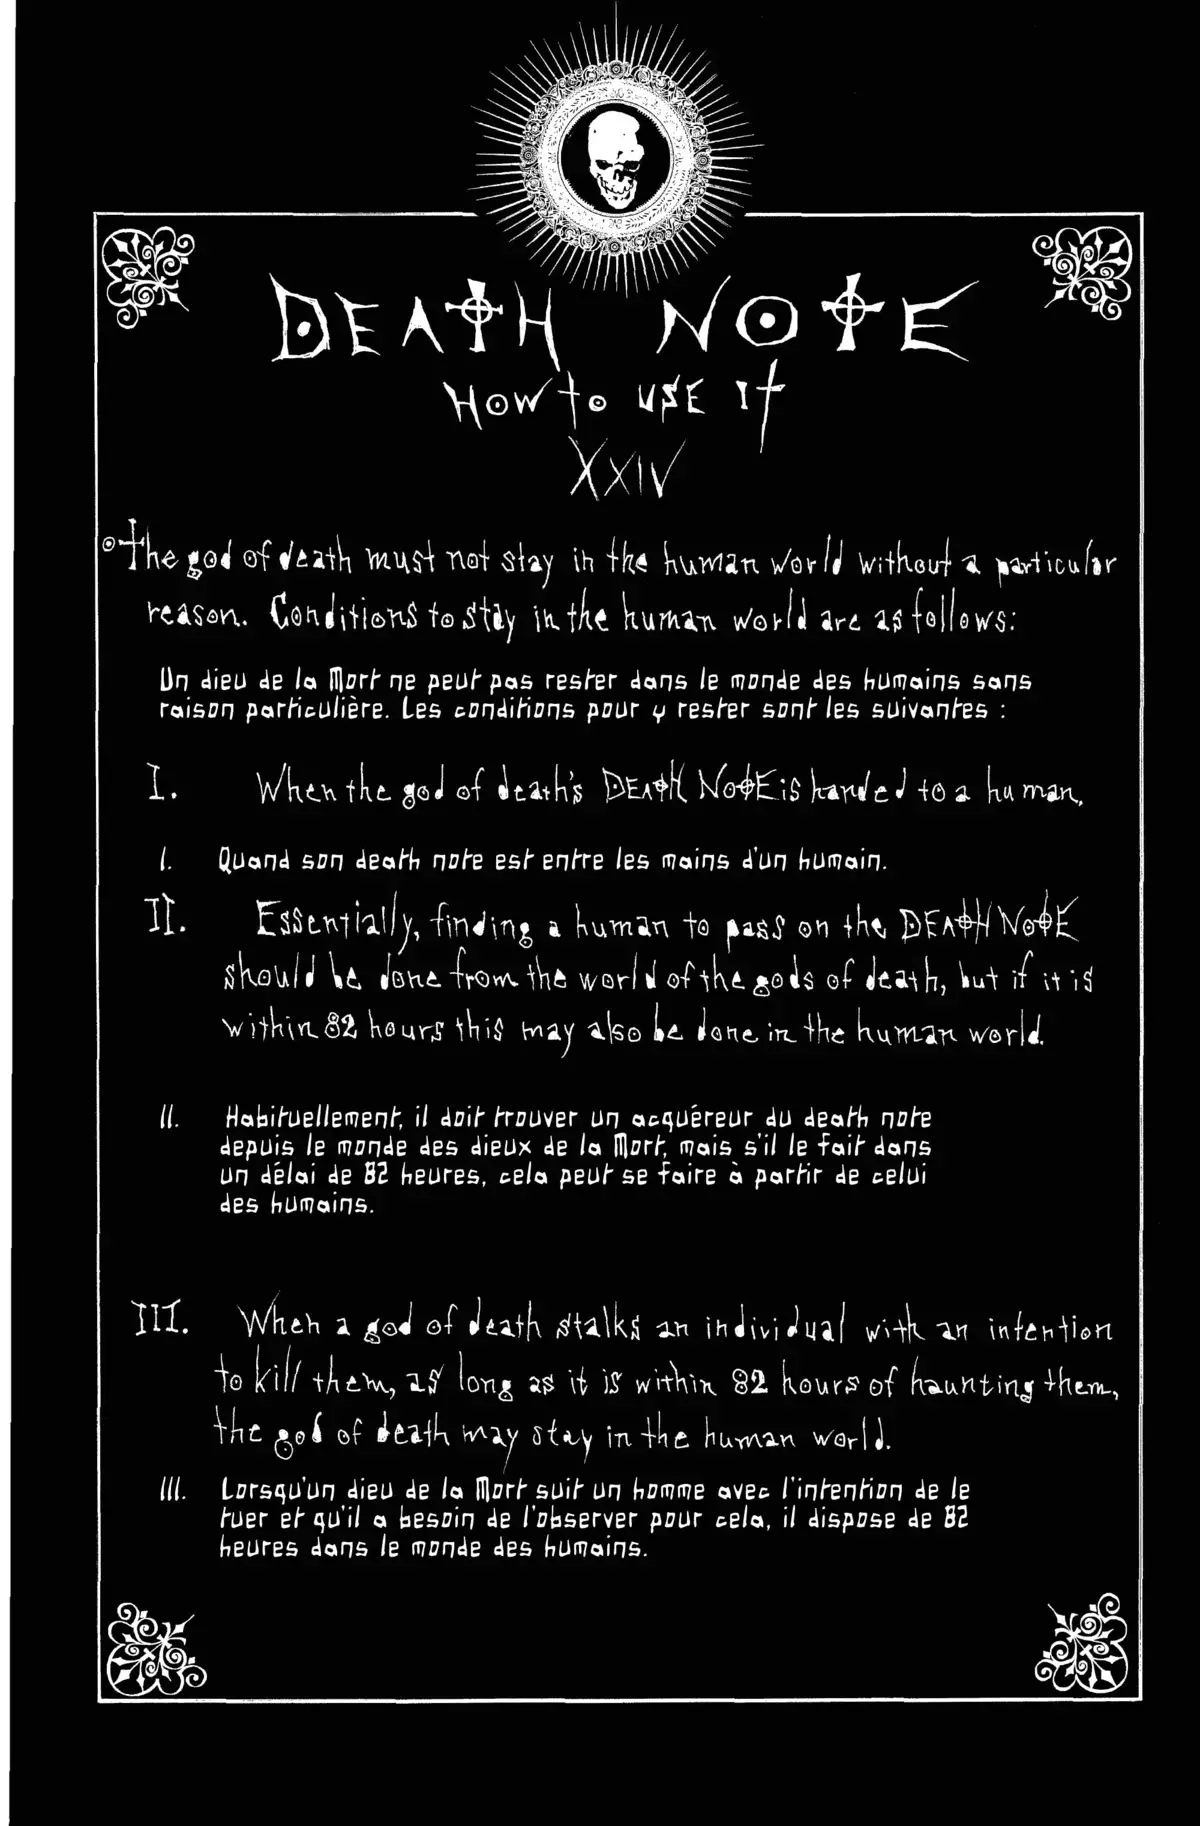 DEATH NOTE
HOW to USE It
XXIV
The god of death must not stay in the human world without a particular
reason. Conditions to stay in the human world are as follows:
Un dieu de la Mort ne peut pas rester dans le monde des humains sans
raison particulière. Les conditions pour y rester sont les suivantes :
I. When the god of death's DEATH NOTE is handed to a human.
I. Quand son death note est entre les mains d'un humain.
II. Essentially, finding a human to pass on the DEATH NOTE
should be done from the world of the gods of death, but if it is
within 82 hours this may also be done in the human world.
II. Habituellement, il doit trouver un acquéreur du death note
depuis le monde des dieux de la Mort, mais s'il le fait dans
un délai de 82 heures, cela peut se faire à partir de celui
des humains.
III. When a god of death stalks an individual with an intention
to kill them, as long as it is within 82 hours of haunting them,
the god of death may stay in the human world.
III. Lorsqu'un dieu de la Mort suit un homme avec l'intention de le
tuer et qu'il a besoin de l'observer pour cela, il dispose de 82
heures dans le monde des humains.